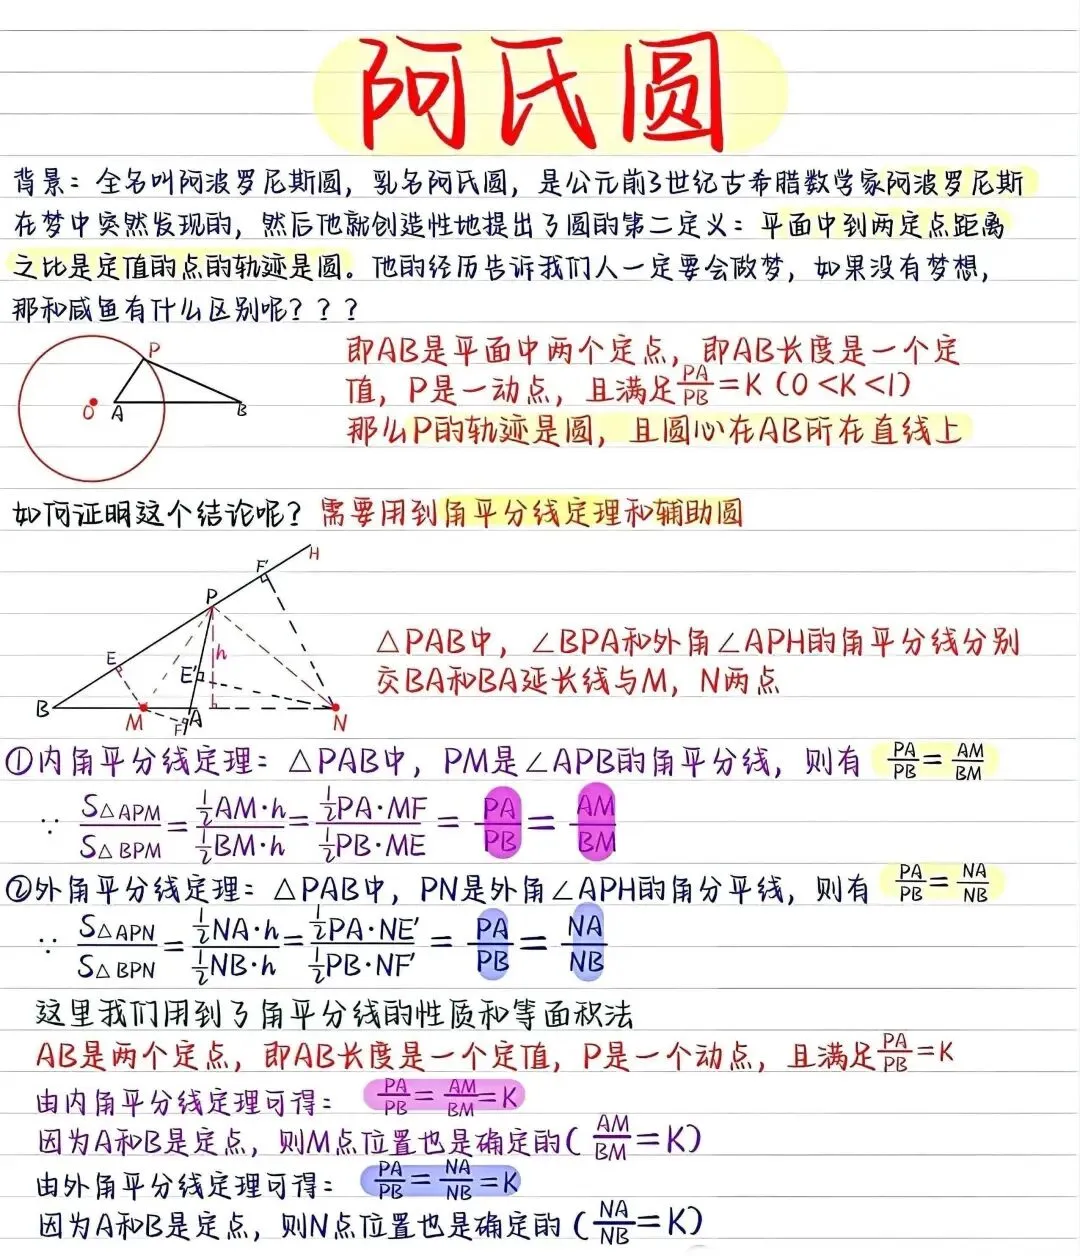 阿氏圆
背景：全名叫阿波罗尼斯圆，乳名阿氏圆，是公元前3世纪古希腊数学家阿波罗尼斯
在梦中突然发现的，然后他就创造性地提出了圆的第二定义：平面中到两定点距离
之比是定值的点的轨迹是圆。他的经历告诉我们人一定要会做梦，如果没有梦想，
那和咸鱼有什么区别呢？？？
P
O A B
即AB是平面中两个定点，即AB长度是一个定
值，P是一动点，且满足PA/PB=K（0<K<1）
那么P的轨迹是圆，且圆心在AB所在直线上
如何证明这个结论呢？需要用到角平分线定理和辅助圆
H
F'
P
E h
E'
B M F A N
△PAB中，∠BPA和外角∠APH的角平分线分别
交BA和BA延长线与M，N两点
①内角平分线定理：△PAB中，PM是∠APB的角平分线，则有 PA/PB=AM/BM
∵ S△APM/S△BPM=(1/2AM·h)/(1/2BM·h)=(1/2PA·MF)/(1/2PB·ME)=PA/PB=AM/BM
②外角平分线定理：△PAB中，PN是外角∠APH的角分平线，则有 PA/PB=NA/NB
∵ S△APN/S△BPN=(1/2NA·h)/(1/2NB·h)=(1/2PA·NE')/(1/2PB·NF')=PA/PB=NA/NB
这里我们用到了角平分线的性质和等面积法
AB是两个定点，即AB长度是一个定值，P是一个动点，且满足PA/PB=K
由内角平分线定理可得：PA/PB=AM/BM=K
因为A和B是定点，则M点位置也是确定的(AM/BM=K)
由外角平分线定理可得：PA/PB=NA/NB=K
因为A和B是定点，则N点位置也是确定的(NA/NB=K)